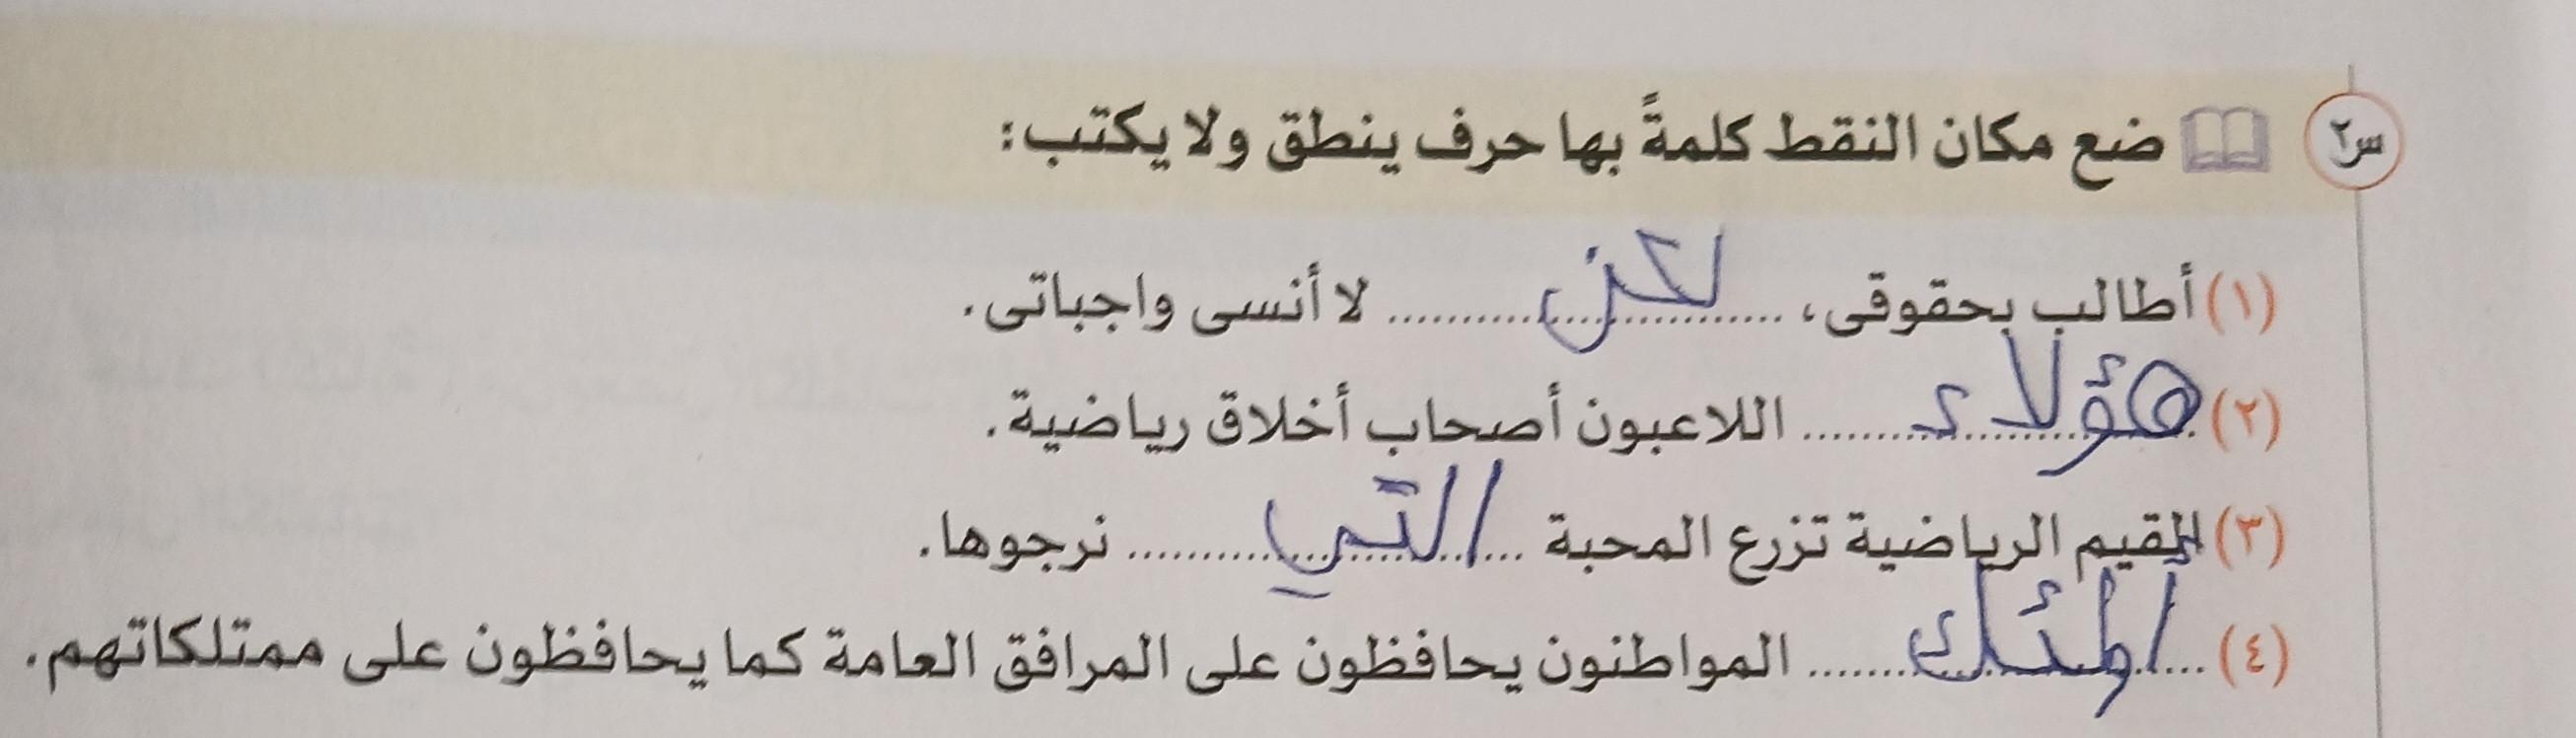 س٢ ضع مكان النقط كلمةً بها حرف ينطق ولا يكتب:
(١) أطالب بحقوقى، ..... لكن ..... لا أنسى واجباتى.
(٢) هؤلاء ..... اللاعبون أصحاب أخلاق رياضية.
(٣) القيم الرياضية تزرع المحبة ..... التي ..... نرجوها.
(٤) ..... أولئك ..... المواطنون يحافظون على المرافق العامة كما يحافظون على ممتلكاتهم.